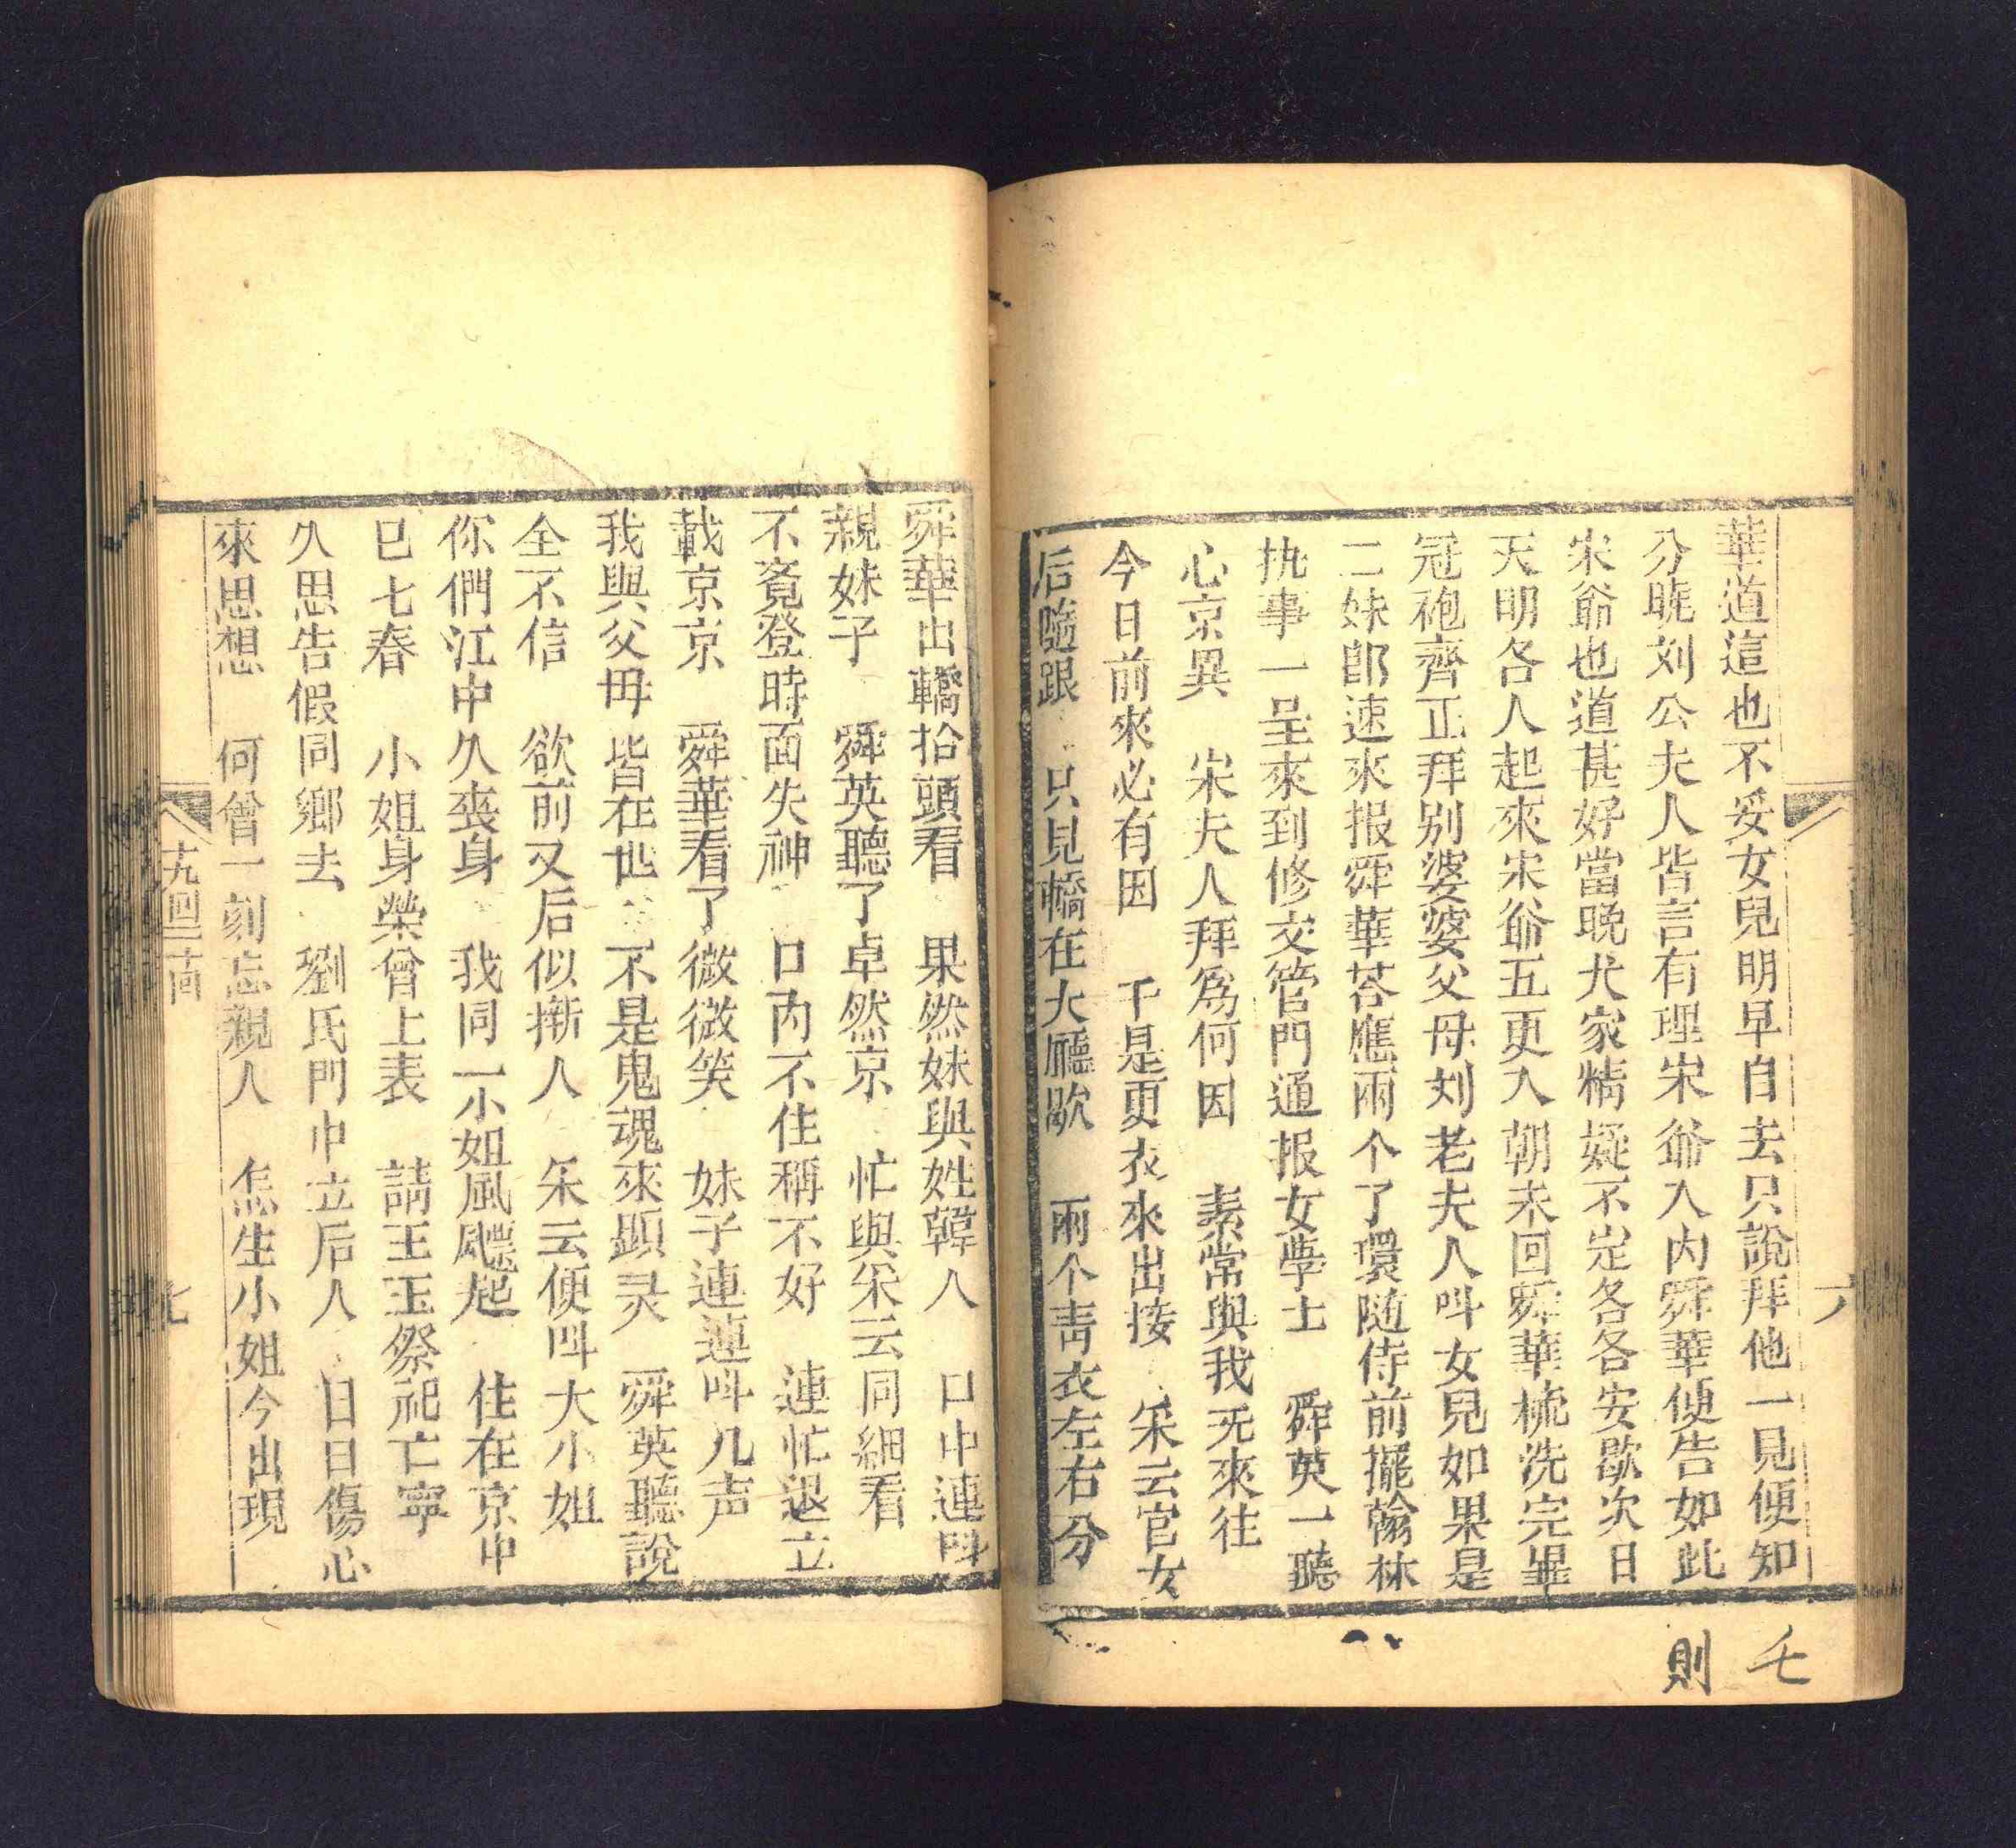 華道這也不妥女兒明早自去只說拜他一見便知
分曉刘公夫人皆言有理宋爺入內舜華便告如此
宋爺也道甚好當晚大家精疑不定各各安歇次日
天明各人起來宋爺五更入朝未回舜華梳洗完畢
冠袍齊正拜别婆婆父母刘老夫人叫女兒如果是
二妹即速來报舜華荅應兩个了環随侍前擺翰林
执事一呈來到修文管門通报女學士　舜英一聽
心京異　宋夫人拜為何因　素常與我无來往
今日前來必有因　千是更衣來出接　采云官女
后随跟　只見轎在大廳歇　兩个青衣左右分
六
舜華出轎抬頭看　果然妹與姓韓人　口中連叫
親妹子　舜英聽了卓然京　忙與采云同細看
不覔登時面失神　口內不住稱不好　連忙退立
載京京　舜華看了微微笑　妹子連連叫几声
我與父毋皆在世　不是鬼魂來顕灵　舜英聽說
全不信　欲前又后似慚人　采云便叫大小姐
你們江中久丧身　我同一小姐風飃起　住在京中
已七春　小姐身榮曾上表　請王玉祭祀亡寕
久思告假同鄉去　劉氏門中立后人　日日傷心
來思想　何曾一刻忘親人　怎生小姐今出現
十九回二十回
七
則